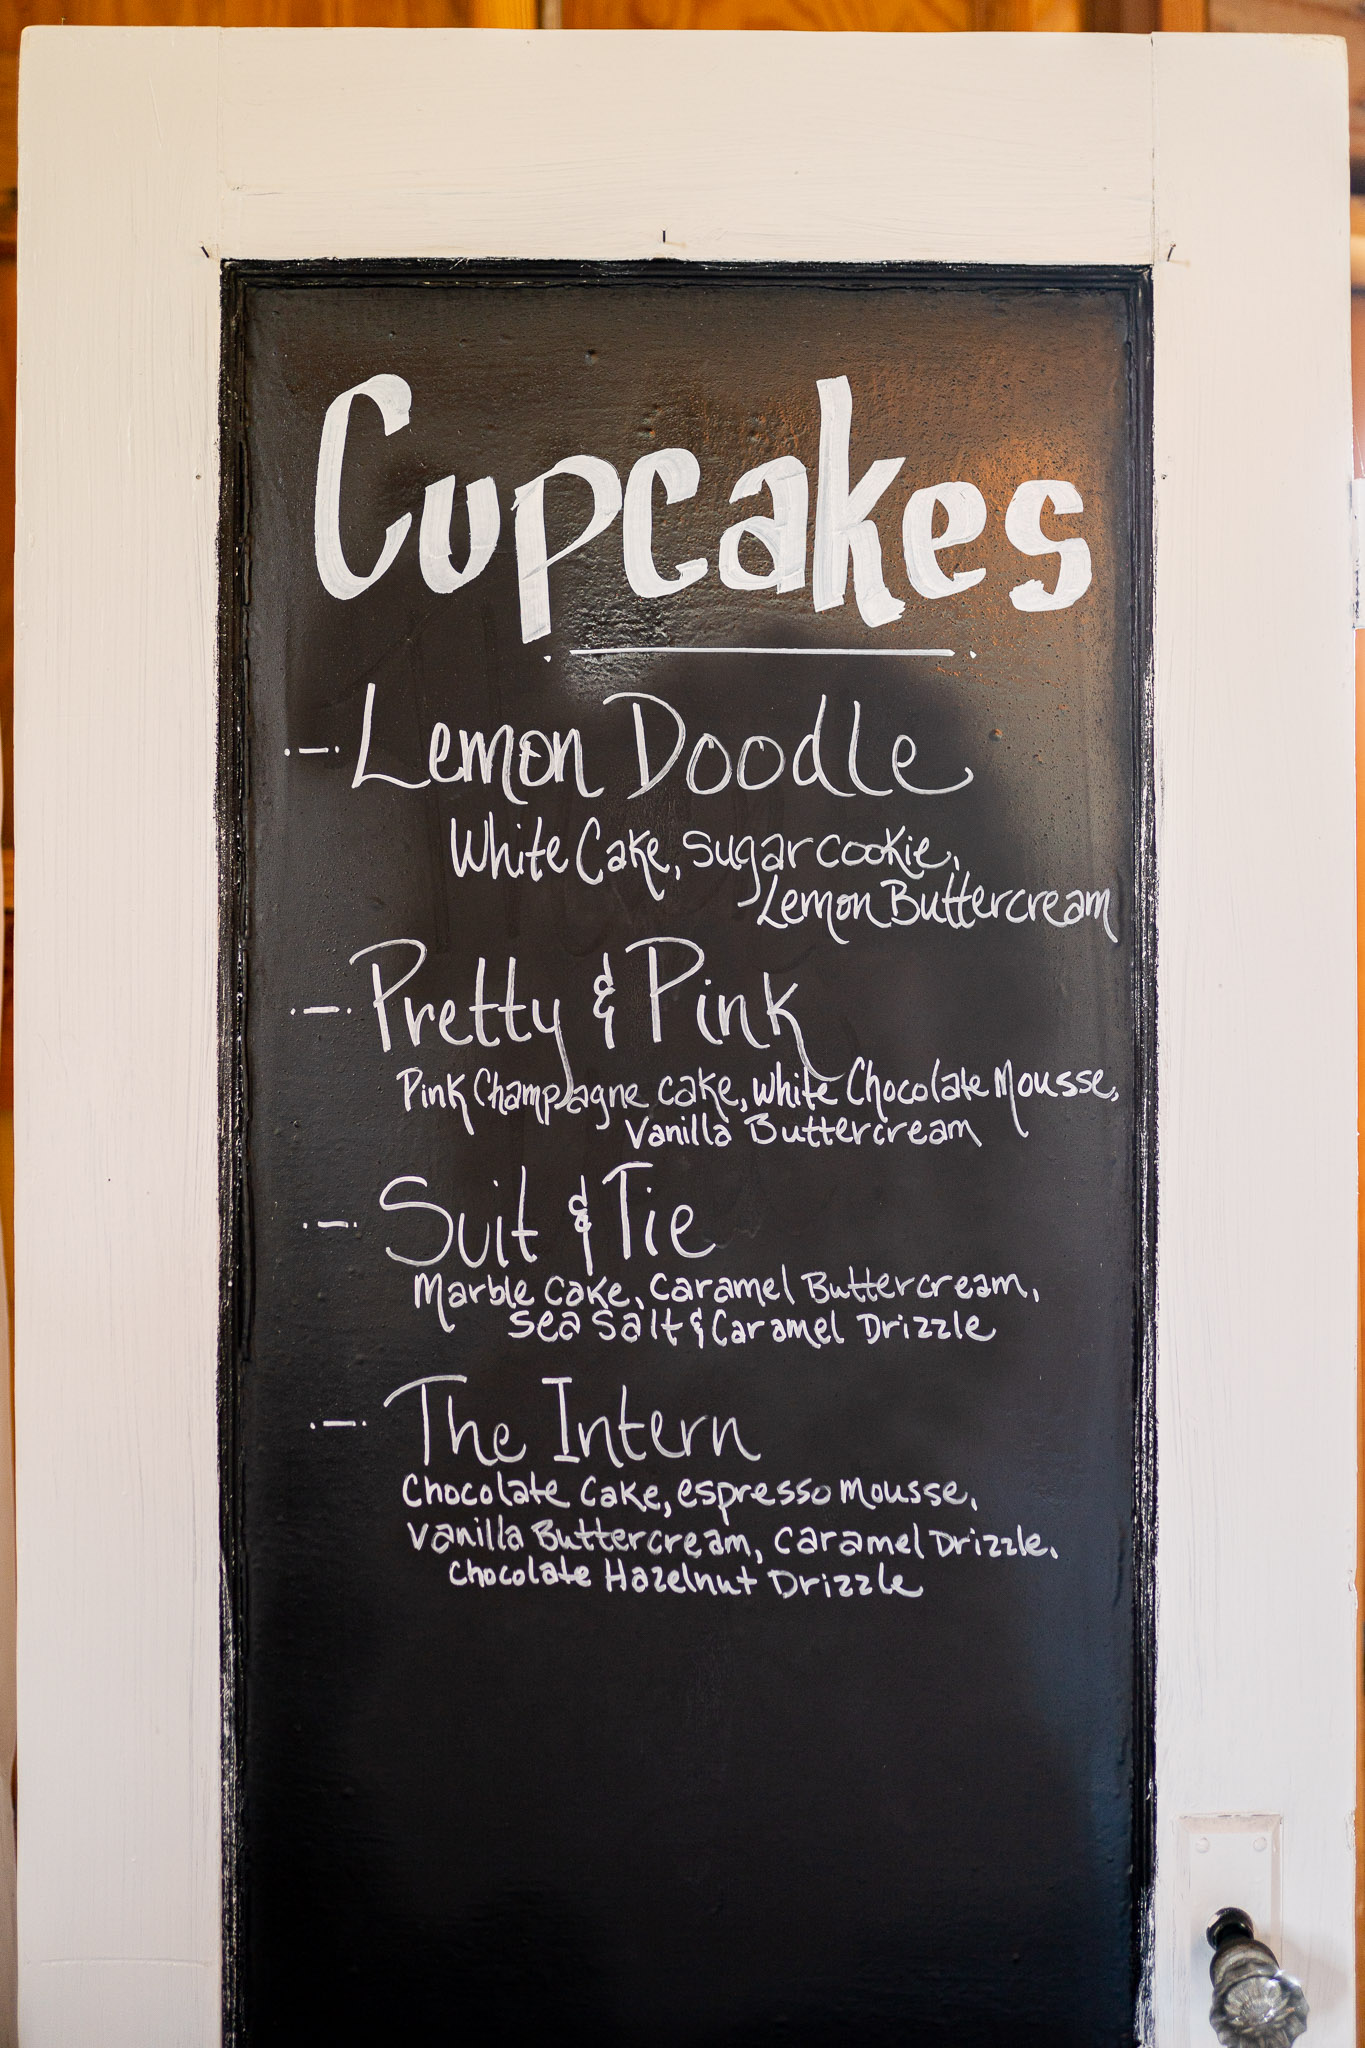 Cupcakes
Lemon Doodle
White Cake, sugar cookie,
Lemon Buttercream
Pretty & Pink
Pink Champagne cake, white Chocolate Mousse,
Vanilla Buttercream
Suit & Tie
Marble Cake, Caramel Buttercream,
Sea Salt & Caramel Drizzle
The Intern
Chocolate Cake, espresso mousse,
Vanilla Buttercream, Caramel Drizzle,
Chocolate Hazelnut Drizzle